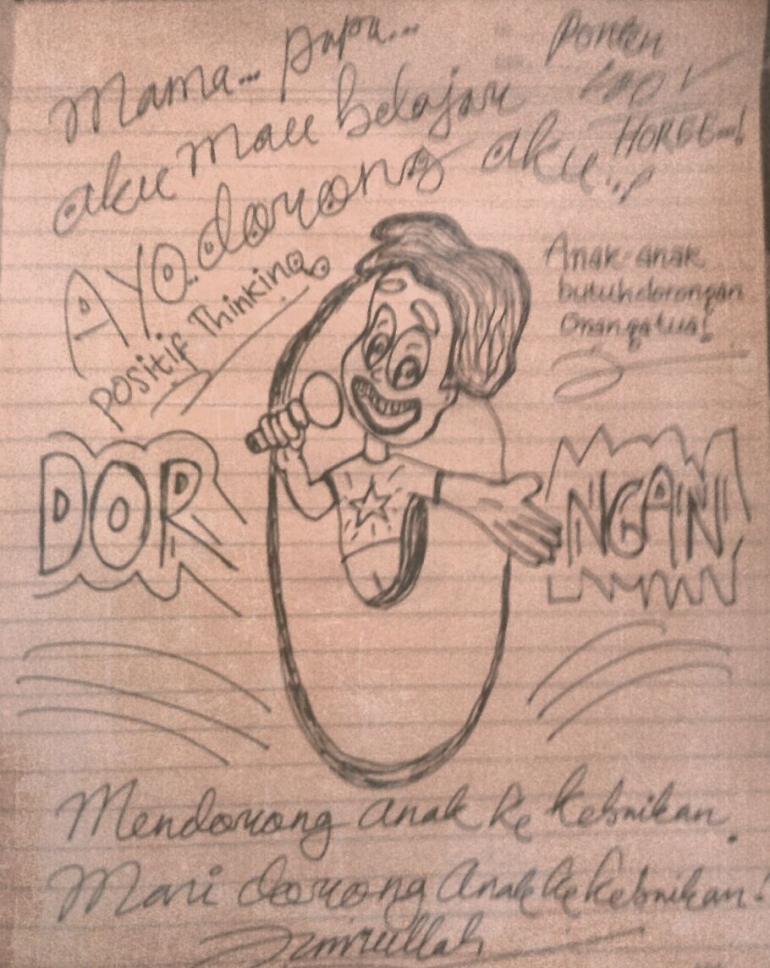 Mama... papa...
aku mau belajar
Ayo.. dorong aku..!
Positif Thinking
Ponten
100
HOREE...!
Anak-anak
butuh dorongan
Orangatua!
DOR
O
NGAN
Mendorong anak ke kebaikan.
Mari dorong Anak ke kebaikan!